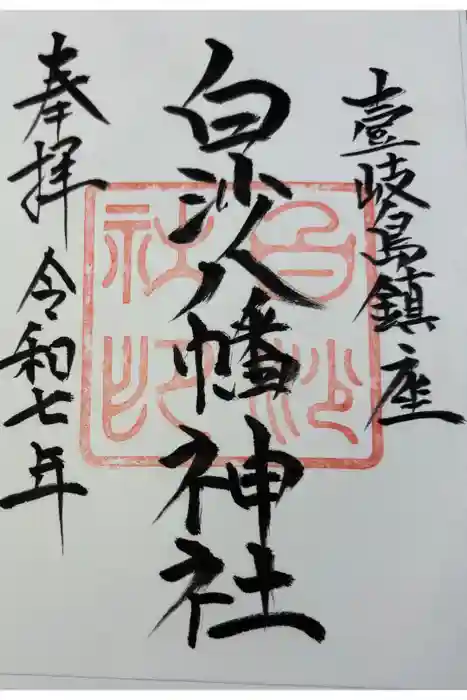 壹岐島鎮座
白沙八幡神社
奉拝 令和七年
白沙
社印